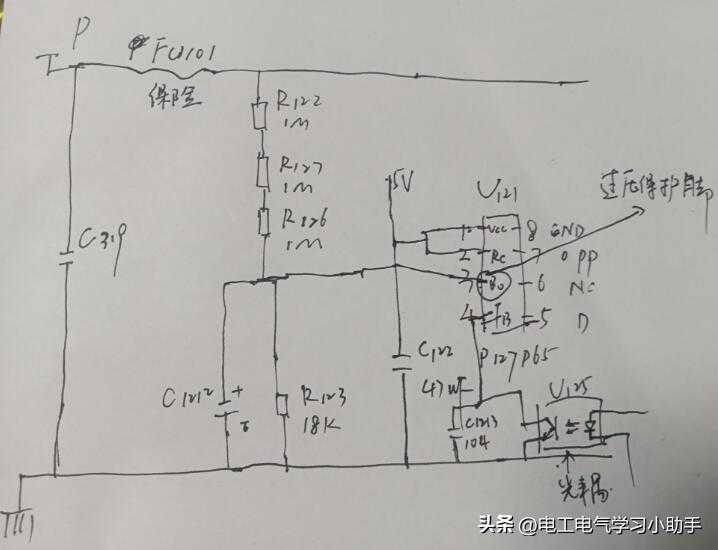 P
FU101
保险
R122
1M
R127
1M
R126
1M
5V
U121
过压保护脚
C319
1 Vcc 8 GND
2 Rc 7 OPP
3 Bo 6 NC
4 FB 5 D
P127P65
C122
C1212
+
R123
18K
47W
C1213
104
U125
光耦
头条 @电工电气学习小助手